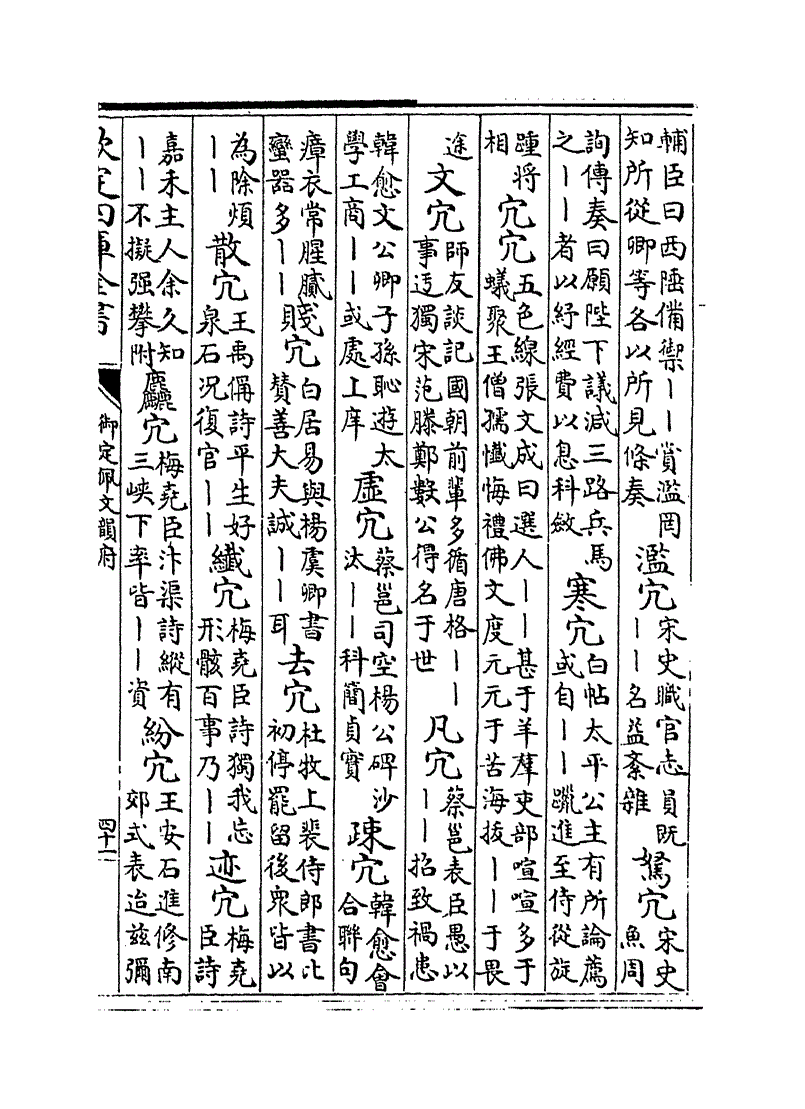 輔臣曰西陲備禦丨丨賞濫罔知所從卿等各以所見條奏 濫宂 宋史職官志員既丨丨名益紊雜 駑宂 宋史魚周
詢傳奏曰願陛下議減三路兵馬之丨丨者以紓經費以息科斂 寒宂 白帖太平公主有所論薦或自丨丨躐進至侍從旋
踵將相 宂宂 五色線張文成曰選人丨丨甚于羊羣吏部喧喧多于蟻聚王僧孺懺悔禮佛文度元元于苦海拔丨丨于畏
途 文宂 師友談記國朝前輩多循唐格丨丨事迂獨宋范滕鄭數公得名于世 凡宂 蔡邕表臣愚以丨丨招致禍患
韓愈文公卿子孫恥遊太學工商丨丨或處上庠 虛宂 蔡邕司空楊公碑沙汰丨丨科簡貞實 疎宂 韓愈會合聯句
瘴衣常腥膩蠻器多丨丨 賤宂 白居易與楊虞卿書贊善大夫誠丨丨耳 去宂 杜牧上裴侍郎書比初停罷留後衆皆以
為除煩丨丨 散宂 王禹偁詩平生好泉石况復官丨丨 纎宂 梅堯臣詩獨我忘形骸百事乃丨丨 迹宂 梅堯臣詩
嘉禾主人余久知丨丨不擬强攀附 麤宂 梅堯臣汴渠詩縱有三峡下率皆丨丨資 紛宂 王安石進修南郊式表迨兹彌
欽定四庫全書 御定佩文韻府 四十一